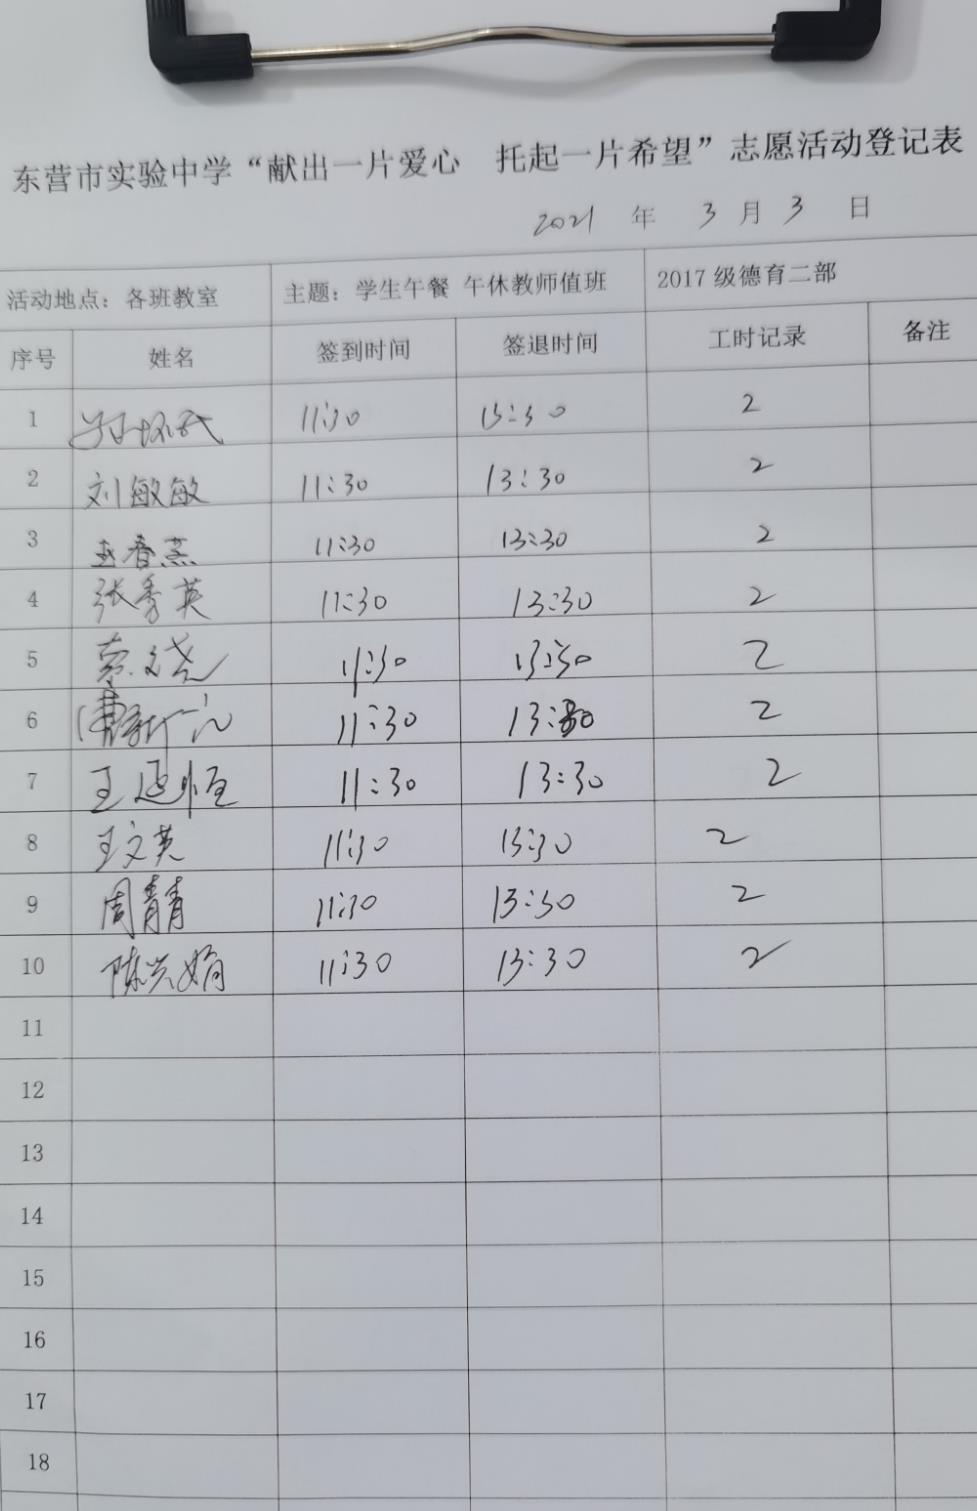 东营市实验中学“献出一片爱心 托起一片希望”志愿活动登记表
2021 年 3 月 3 日
活动地点：各班教室 主题：学生午餐 午休教师值班 2017 级德育二部
序号 姓名 签到时间 签退时间 工时记录 备注
1 11:30 13:30 2
2 刘敏敏 11:30 13:30 2
3 王春燕 11:30 13:30 2
4 张秀英 11:30 13:30 2
5 11:30 13:30 2
6 11:30 13:30 2
7 王延恒 11:30 13:30 2
8 王文英 11:30 13:30 2
9 周青青 11:30 13:30 2
10 陈兴娟 11:30 13:30 2
11
12
13
14
15
16
17
18